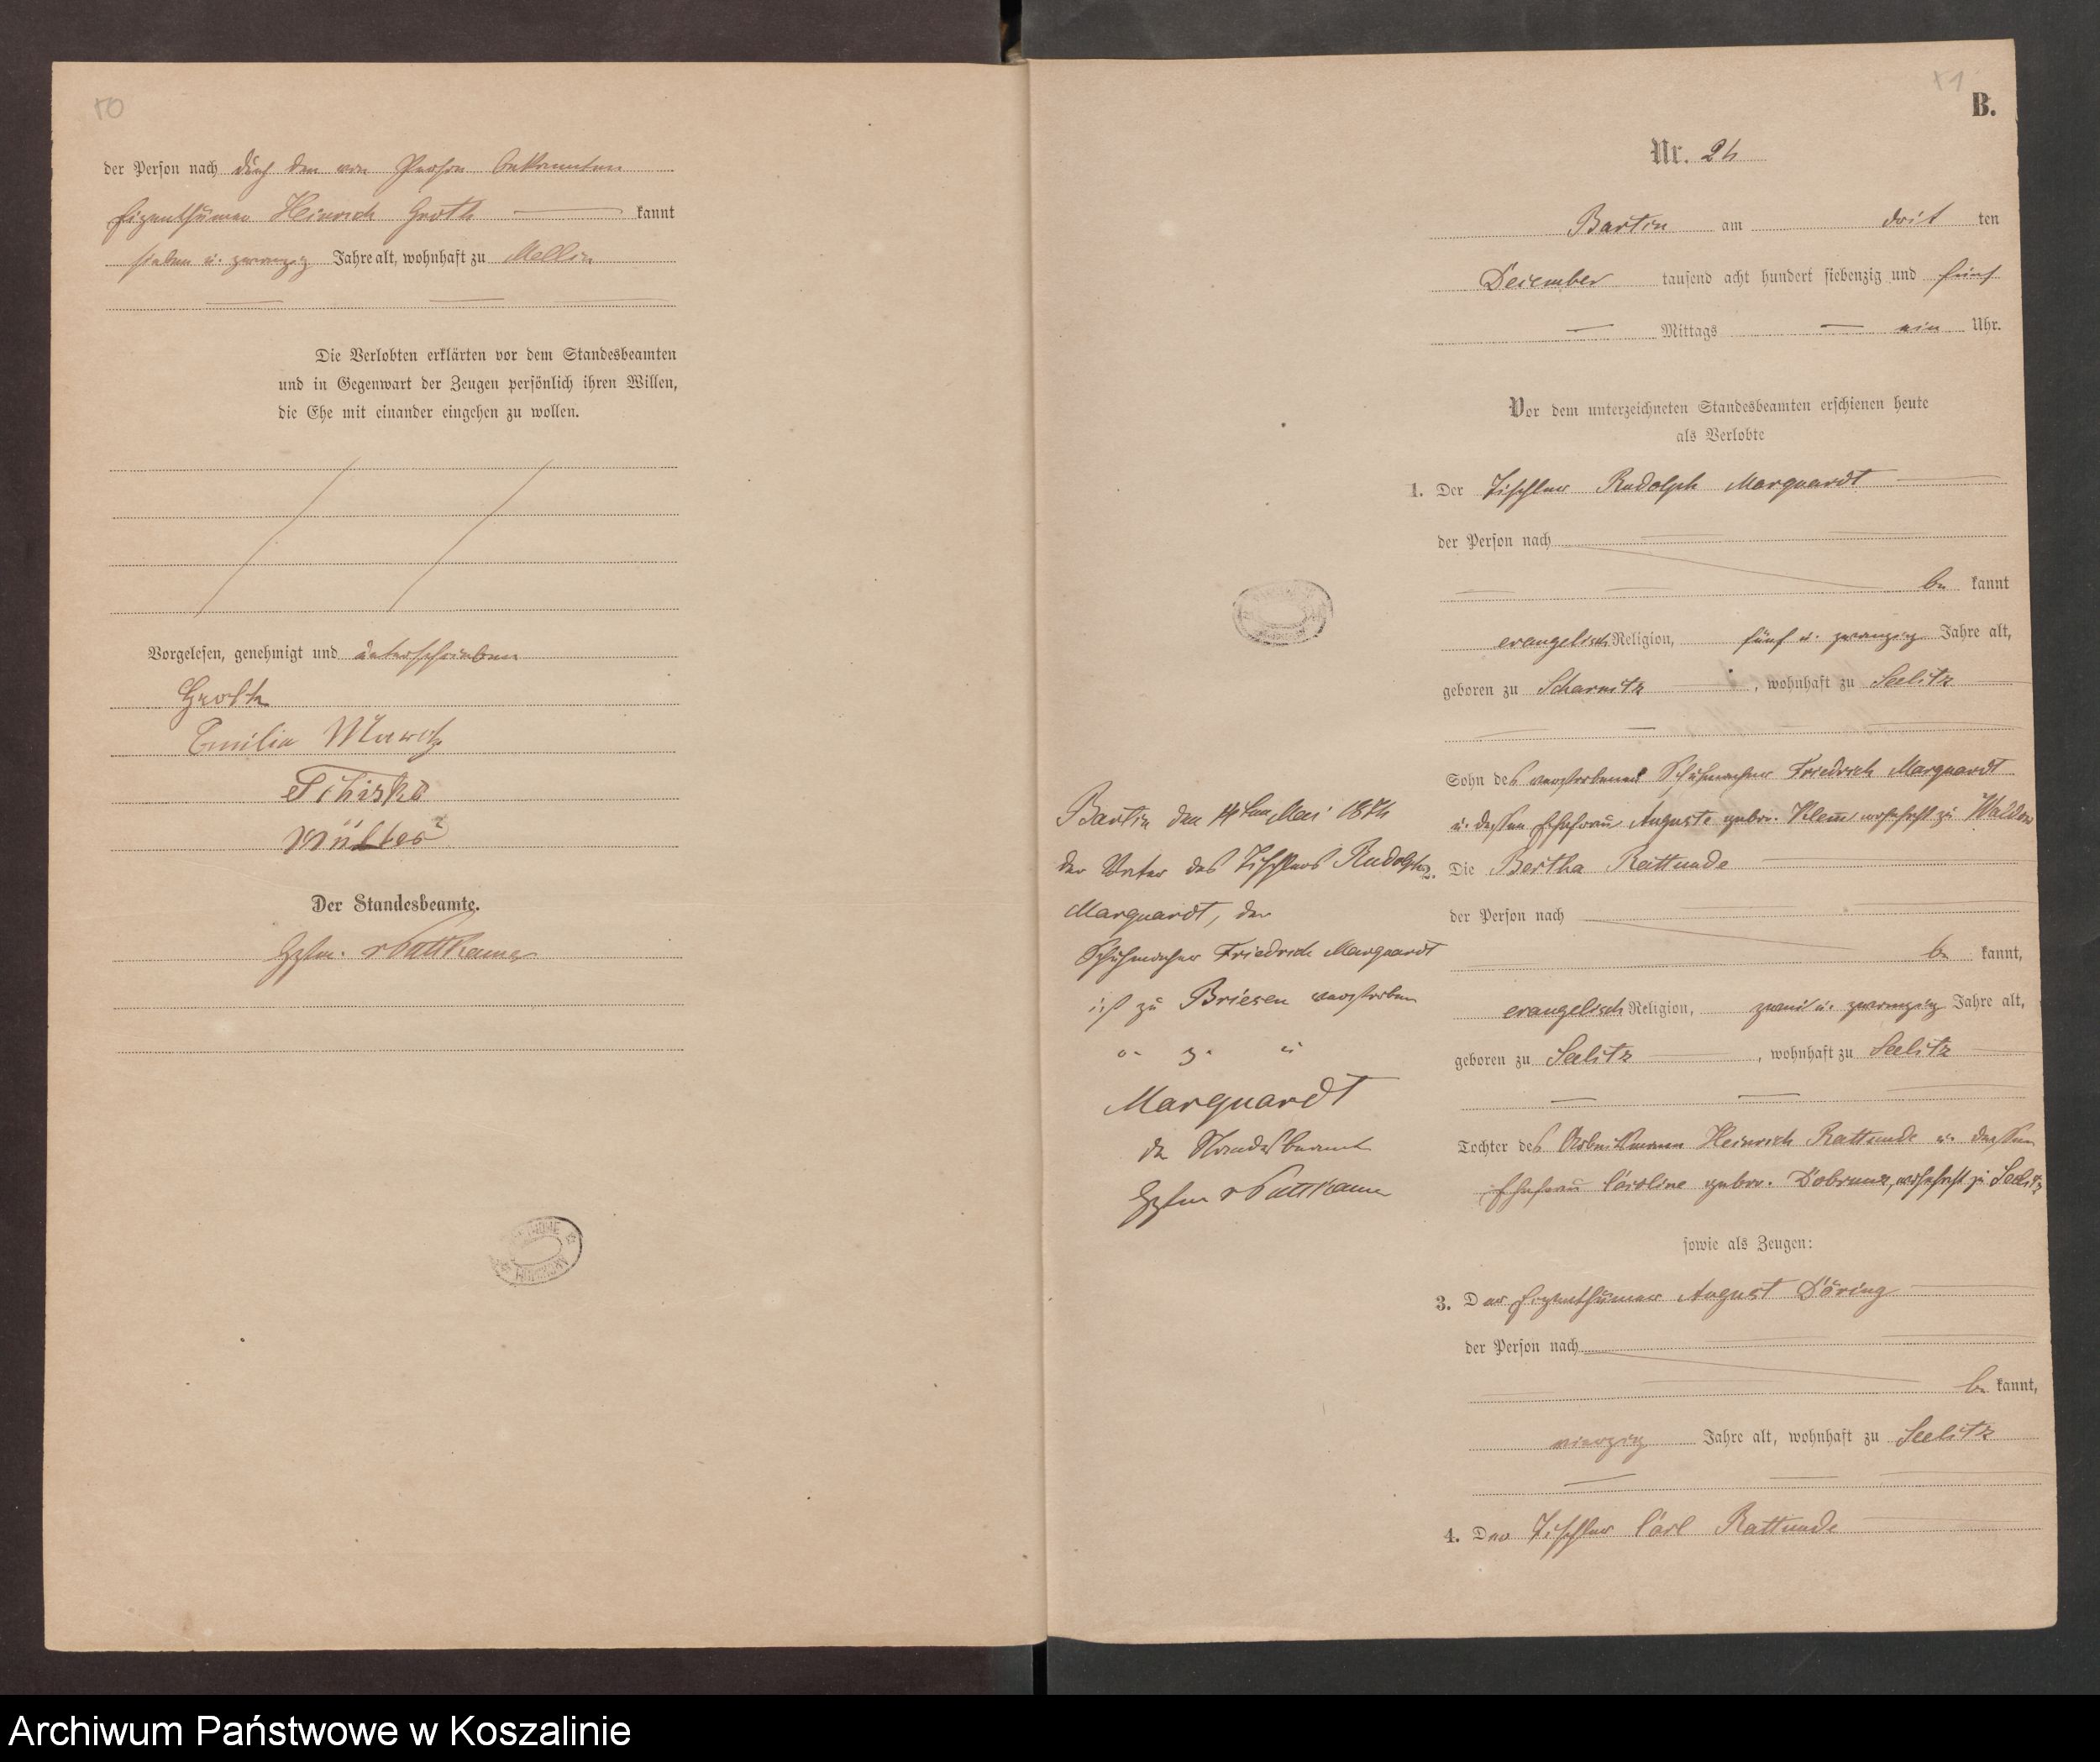 50
der Person nach durch den von Person bekannten
Eigenthümer Heinrich Groth kannt
sieben u. zwanzig Jahre alt, wohnhaft zu Mellin
Die Verlobten erklärten vor dem Standesbeamten
und in Gegenwart der Zeugen persönlich ihren Willen,
die Ehe mit einander eingehen zu wollen.
Vorgelesen, genehmigt und unterschrieben
Groth
Emilie
Der Standesbeamte.
v Puttkamer
51
B.
Nr. 24
Bartin am drit ten
December tausend acht hundert siebenzig und fünf
Mittags ein Uhr.
Vor dem unterzeichneten Standesbeamten erschienen heute
als Verlobte
1. Der Tischler Rudolph Marquardt
der Person nach
be kannt
evangelisch Religion, fünf u. zwanzig Jahre alt,
geboren zu Scharnitz, wohnhaft zu Seelitz
Sohn des verstorbenen Schuhmacher Friedrich Marquardt
u. dessen Ehefrau Auguste gebor. Klemm wohnhaft zu Waldow
2. Die Bertha Rattunde
der Person nach
be kannt,
evangelisch Religion, zwei u. zwanzig Jahre alt,
geboren zu Seelitz, wohnhaft zu Seelitz
Tochter des Arbeitsmann Heinrich Rattunde u. dessen
Ehefrau Caroline gebor. wohnhaft zu Seelitz
sowie als Zeugen:
3. Der Eigenthümer August Döring
der Person nach
be kannt,
vierzig Jahre alt, wohnhaft zu Seelitz
4. Der Tischler Carl Rattunde
Bartin den 14ten Mai
der Vater des Tischlers Rudolph
Marquardt, der
Schuhmacher Friedrich Marquardt
ist zu Briesen verstorben
v. g. u
Marquardt
der Standesbeamte
v Puttkamer
Archiwum Państwowe w Koszalinie